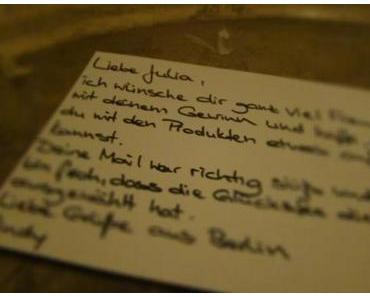 Liebe Julia,
ich wünsche dir ganz viel
mit deinem Gewinn und hoffe
du mit den Produkten etwas
kannst.
Deine Mail war richtig süß und
bin froh, dass die Glücksfee
ausgewählt hat.
Liebe Grüße aus Berlin